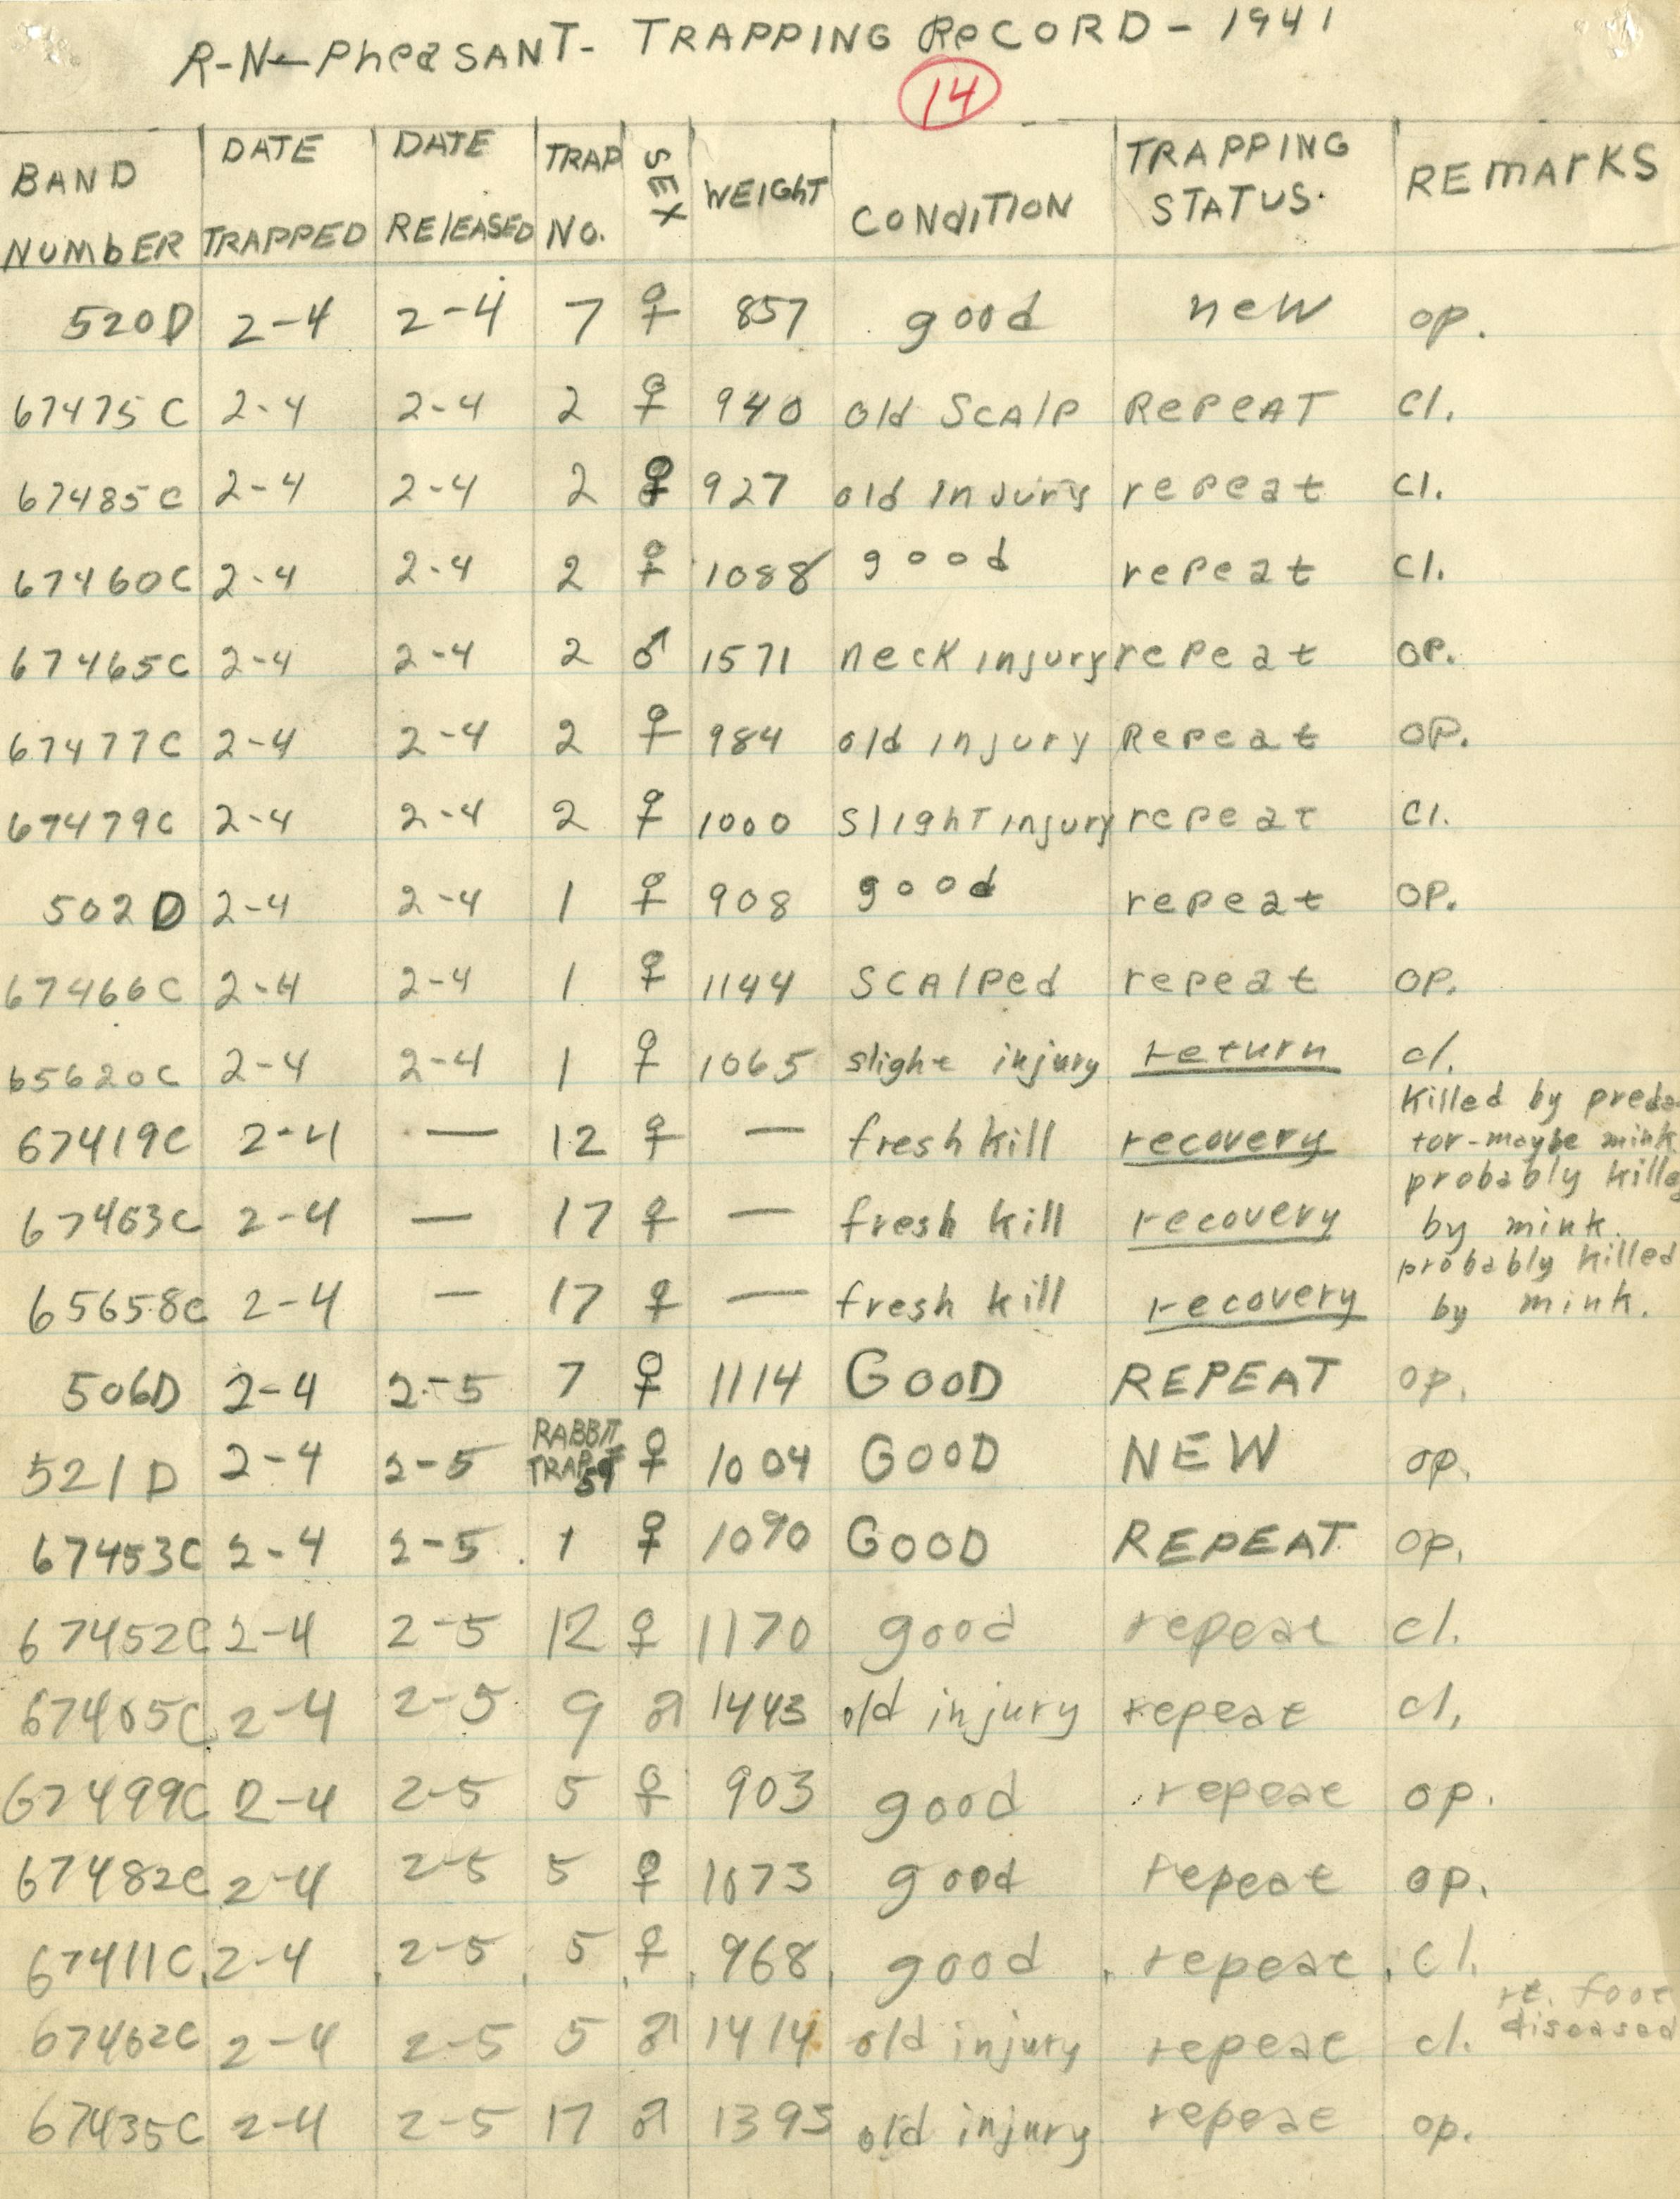 R-N-PheaSANT- TRAPPING ReCORD - 1941
14
BAND NUMbER DATE TRAPPED DATE RElEASED TRAP No. SEX WEIGhT CONdITION TRAPPING STATUS. REmArKS
520D 2-4 2-4 7 ♀ 857 good neW op.
67475C 2-4 2-4 2 ♀ 940 old SCAlP RePeAT cl.
67485C 2-4 2-4 2 ♀ 927 old Injury repeat cl.
67460C 2-4 2-4 2 ♀ 1088 good repeat cl.
67465C 2-4 2-4 2 ♂ 1571 neck injury repeat OP.
67477C 2-4 2-4 2 ♀ 984 old injury Repeat OP.
67479C 2-4 2-4 2 ♀ 1000 SlighT injury repeat cl.
502D 2-4 2-4 1 ♀ 908 good repeat OP.
67466C 2-4 2-4 1 ♀ 1144 SCAlPed repeat OP.
65620C 2-4 2-4 1 ♀ 1065 slight injury return cl.
67419C 2-4 — 12 ♀ — fresh kill recovery Killed by preda-
tor-maybe mink
67463C 2-4 — 17 ♀ — fresh kill recovery probably killed
by mink.
65658C 2-4 — 17 ♀ — fresh kill recovery probably killed
by mink.
506D 2-4 2-5 7 ♀ 1114 GOOD REPEAT op.
521D 2-4 2-5 RABBIT TRAP ♀ 1004 GOOD NEW op.
67453C 2-4 2-5 1 ♀ 1090 GOOD REPEAT op.
67452C 2-4 2-5 12 ♀ 1170 good repeat cl.
67405C 2-4 2-5 9 ♂ 1443 old injury repeat cl.
67499C 2-4 2-5 5 ♀ 903 good repeat op.
67482C 2-4 2-5 5 ♀ 1073 good repeat op.
67411C 2-4 2-5 5 ♀ 968 good repeat cl.
67462C 2-4 2-5 5 ♂ 1414 old injury repeat cl. rt. foot
diseased
67435C 2-4 2-5 17 ♂ 1395 old injury repeat op.